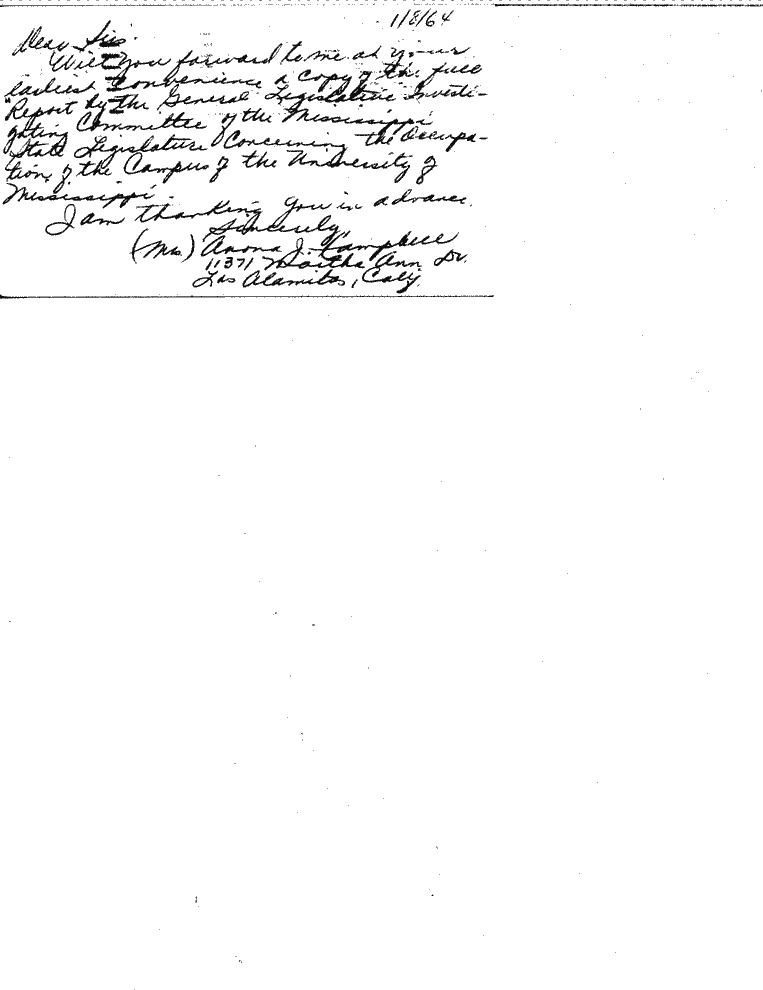 1/8/64
Dear Sir:
Will you forward to me at your
earliest convenience a copy of the full
"Report by the General Legislative Investi-
gating Committee of the Mississippi
State Legislature Concerning the Occupa-
tion of the Campus of the University of
Mississippi.
I am thanking you in advance.
Sincerely,
(Mrs.) Anona J. Campbell
11371 Martha Ann Dr.
Los Alamitos, Calif.